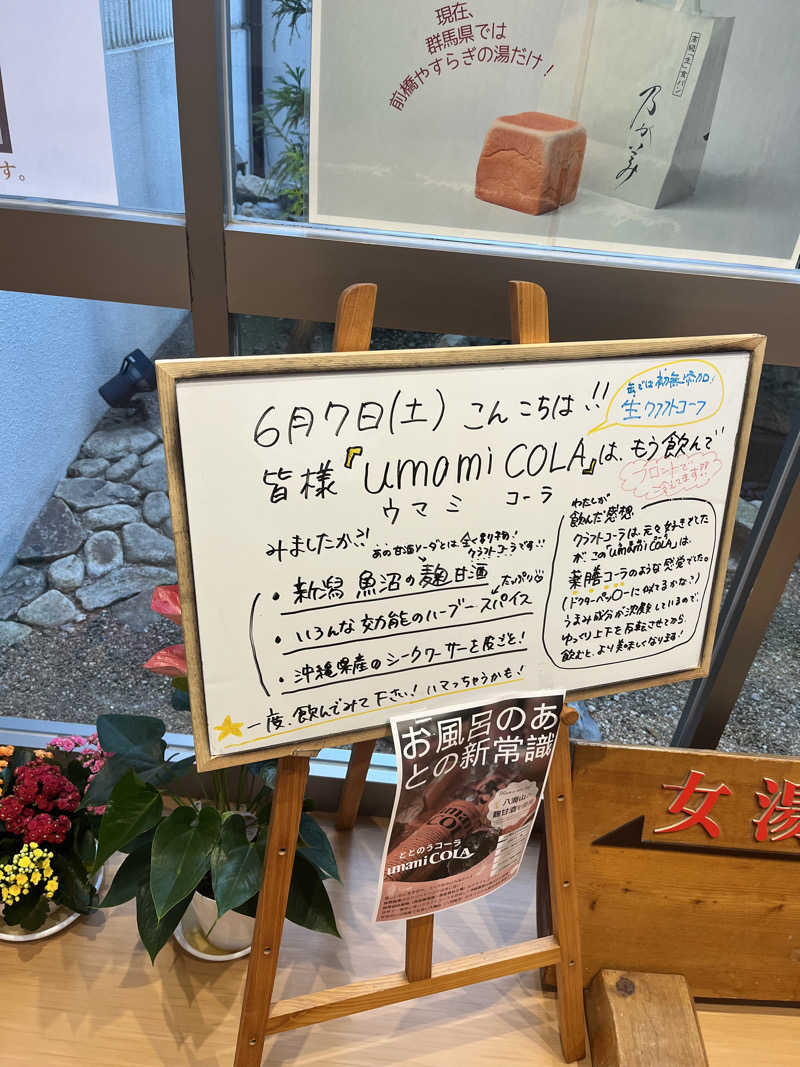 現在、
群馬県では
前橋やすらぎの湯だけ!
本格「生」食パン
乃が美
す。
6月7日(土) こんにちは!!
生クラフトコーラ
皆様『umami COLA』は、もう飲んで
ウマミ コーラ
フロントで
冷えてます!!
みましたか?!
あの甘酒ソーダとは、全く別物!
クラフトコーラです!!
・新潟 魚沼の麹甘酒
たっぷり
・いろんな効能のハーブースパイス
・沖縄県産のシークワーサーを皮ごと!
一度、飲んでみて下さい!
わたしが
飲んだ感想
クラフトコーラは、元々好きでした
が、この"umami COLA"は、
薬膳コーラのような感覚でした。
(ドクターペッパーに似てるかな?)
うまみ成分が沈殿しているので、
ゆっくり上下を反転させてから、
飲むと、より美味しくなります!
お風呂のあ
との新常識
八海山
麹甘酒
ととのうコーラ
umami COLA
女湯